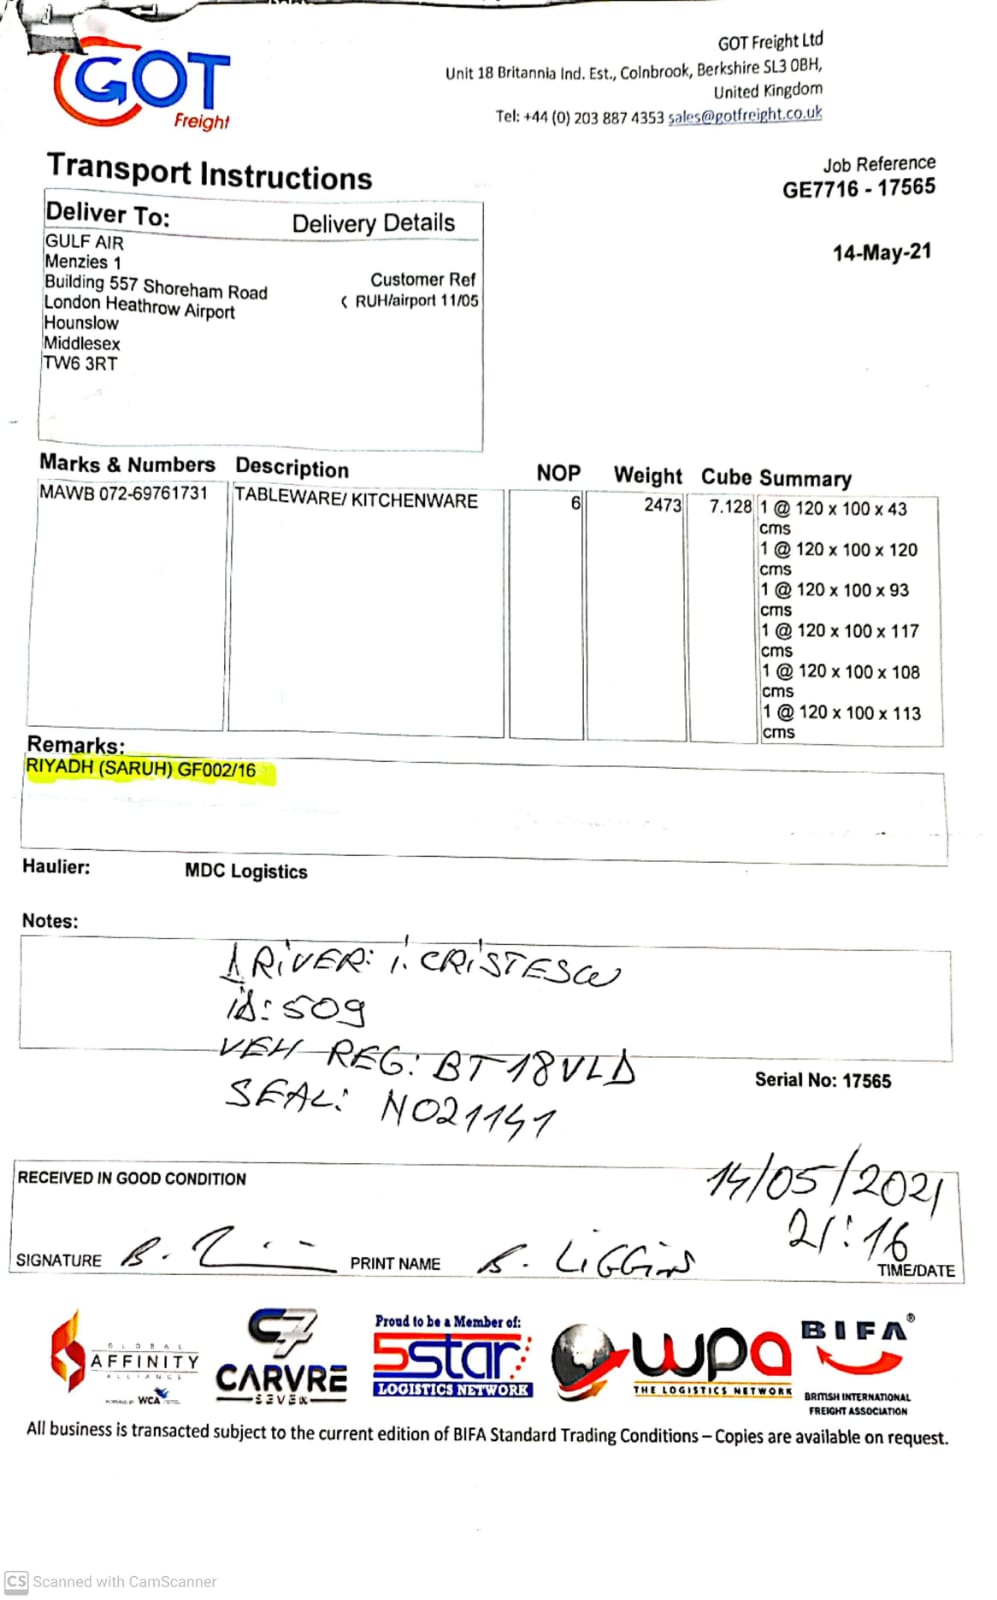 GOT
Freight
GOT Freight Ltd
Unit 18 Britannia Ind. Est., Colnbrook, Berkshire SL3 0BH,
United Kingdom
Tel: +44 (0) 203 887 4353 sales@gotfreight.co.uk
Transport Instructions
Job Reference
GE7716 - 17565
14-May-21
Deliver To:
Delivery Details
GULF AIR
Menzies 1
Building 557 Shoreham Road
London Heathrow Airport
Hounslow
Middlesex
TW6 3RT
Customer Ref
( RUH/airport 11/05
Marks & Numbers Description NOP Weight Cube Summary
MAWB 072-69761731 TABLEWARE/ KITCHENWARE 6 2473 7.128 1 @ 120 x 100 x 43
cms
1 @ 120 x 100 x 120
cms
1 @ 120 x 100 x 93
cms
1 @ 120 x 100 x 117
cms
1 @ 120 x 100 x 108
cms
1 @ 120 x 100 x 113
cms
Remarks:
RIYADH (SARUH) GF002/16
Haulier: MDC Logistics
Notes:
DRIVER: I. CRISTESCU
ID: 509
VEH REG: BT18VLD
SEAL: N021141
Serial No: 17565
RECEIVED IN GOOD CONDITION
14/05/2021
21:16
SIGNATURE
PRINT NAME B. LIGGINS
TIME/DATE
GLOBAL
AFFINITY
ALLIANCE
WCA
C7
CARVRE
SEVEN
Proud to be a Member of:
5star
LOGISTICS NETWORK
wpa
THE LOGISTICS NETWORK
BIFA®
BRITISH INTERNATIONAL
FREIGHT ASSOCIATION
All business is transacted subject to the current edition of BIFA Standard Trading Conditions – Copies are available on request.
CS Scanned with CamScanner